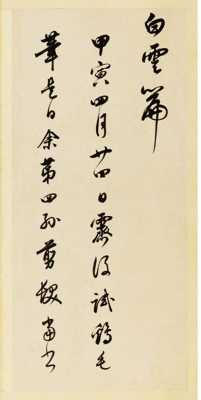 白雲篇
甲寅四月廿四日霽後試鶴毛
筆是日余第四孙剪髮書此